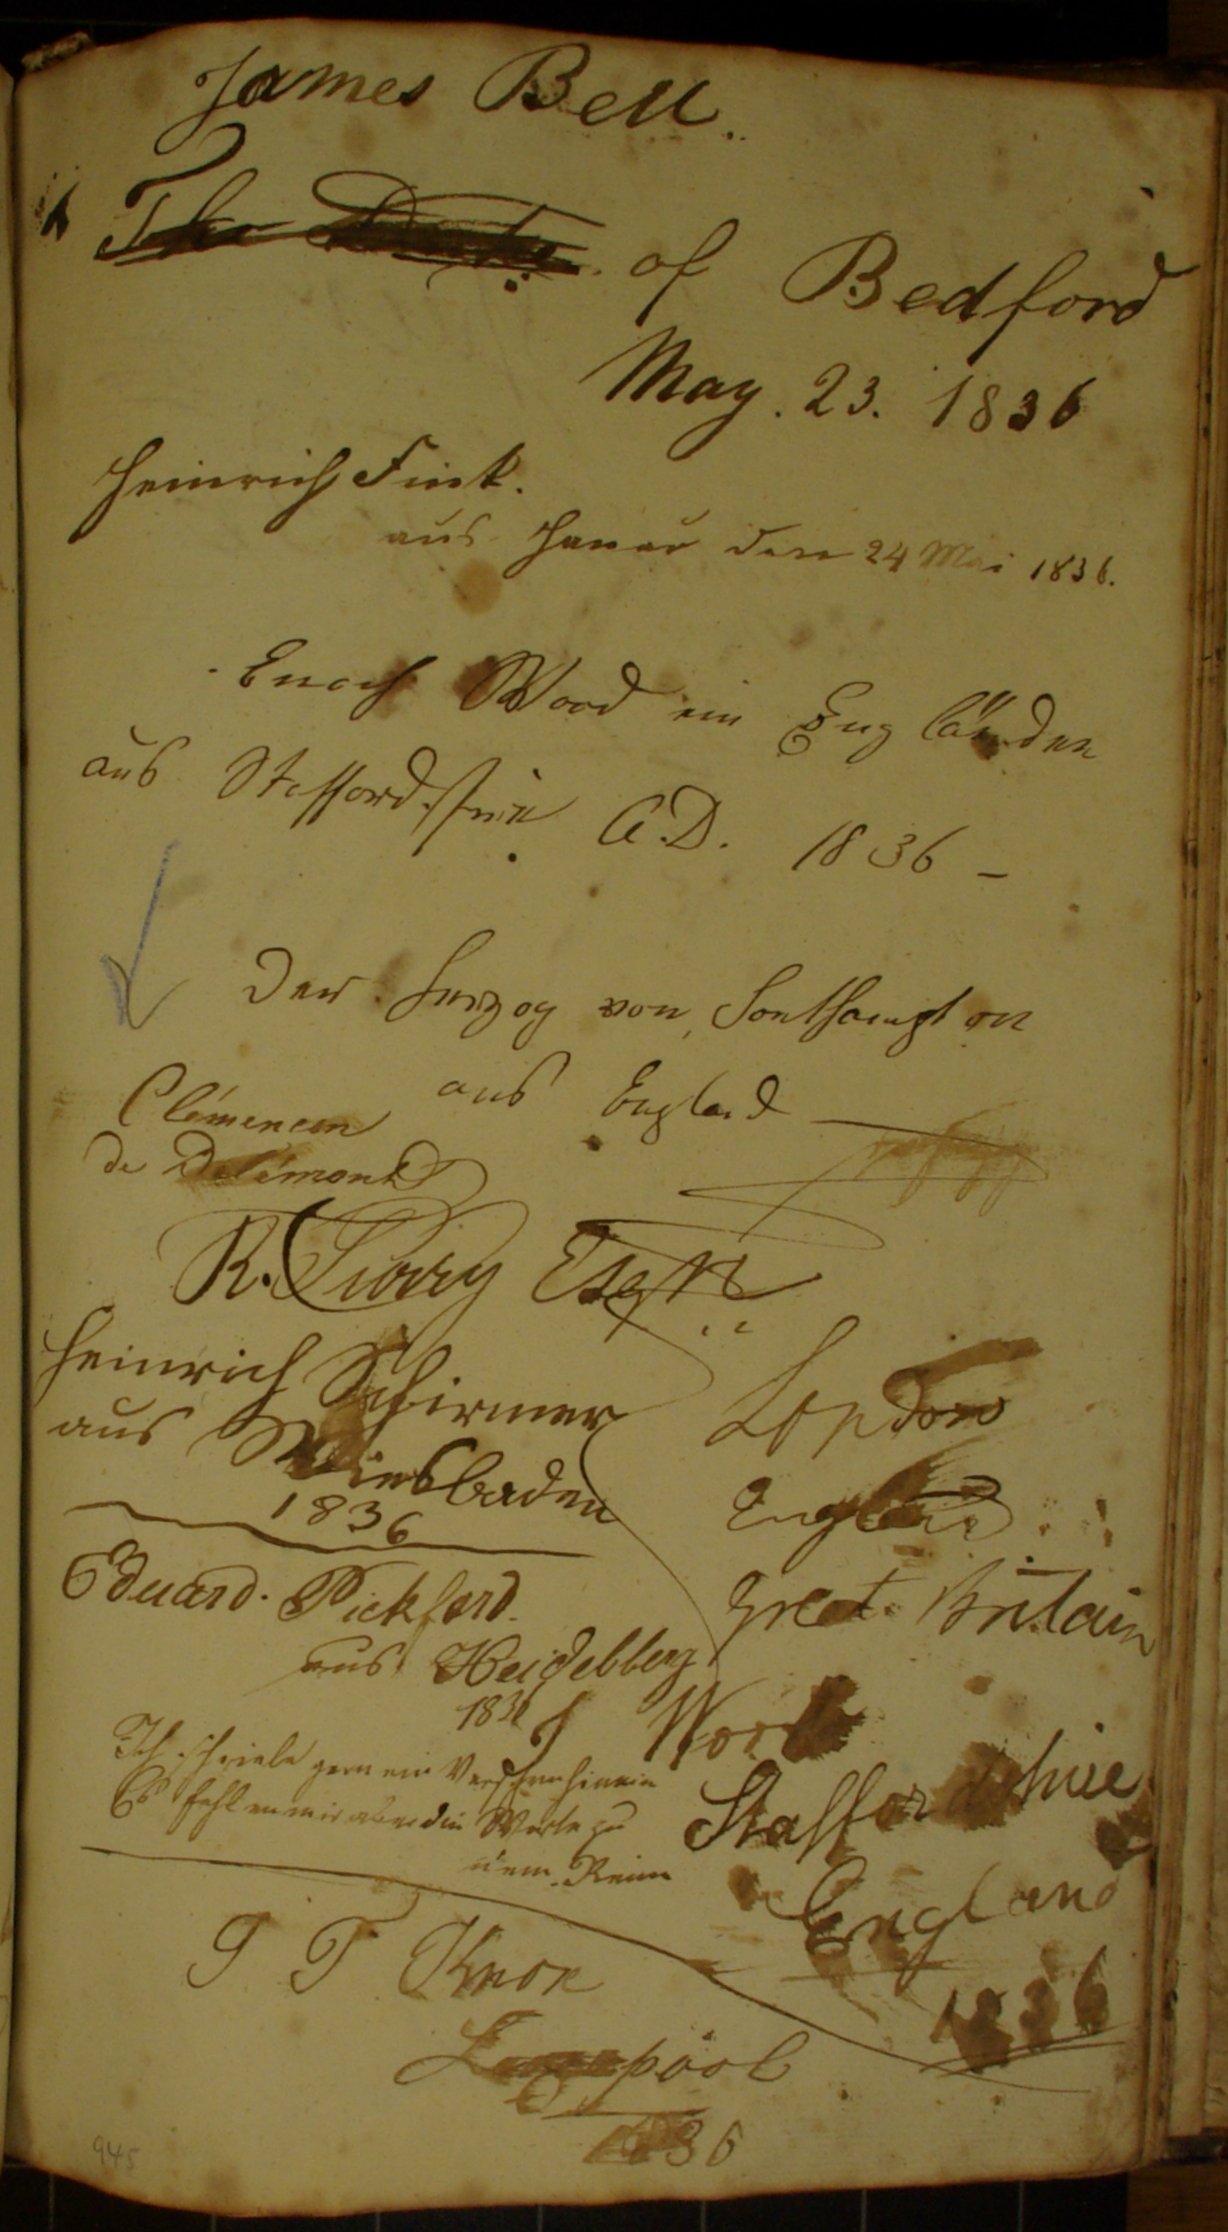 James Bell.
The Duke of Bedford
May. 23. 1836
Heinrich Fink.
aus Hanau den 24 Mai 1836.
Enoch Wood ein Engländer
aus Staffordshire A.D. 1836 -
Der Herzog von Southampton
aus England
Clémencon
de Delémont
R. Esqre
Heinrich Schirmer
aus Wiesbaden
1836
London
England
Great Britain
Eduard. Pickford.
aus Heidelberg
1836
Ich schriebe gern ein Verschen hinein
Es fehlen mir aber die Worte zu
nem Reim
Wood
Staffordshire
England
1836
T Knox
Liverpool
1836
945